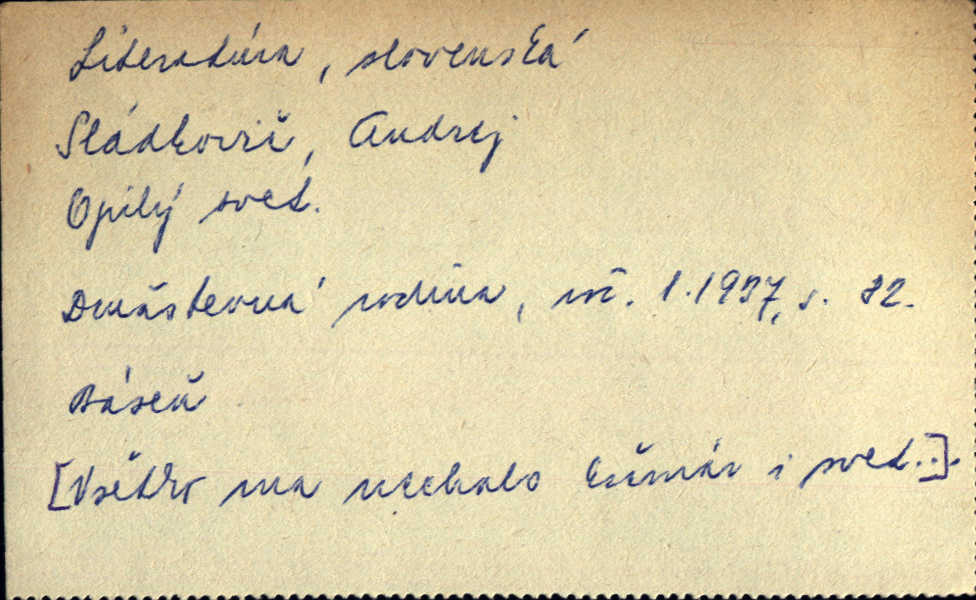 Literatúra, slovenská
Sládkovič, Andrej
Opilý svet.
Družstevná rodina, roč. 1.1937, s. 32.
Báseň
[Všetko ma nechalo krčmár i svet..].